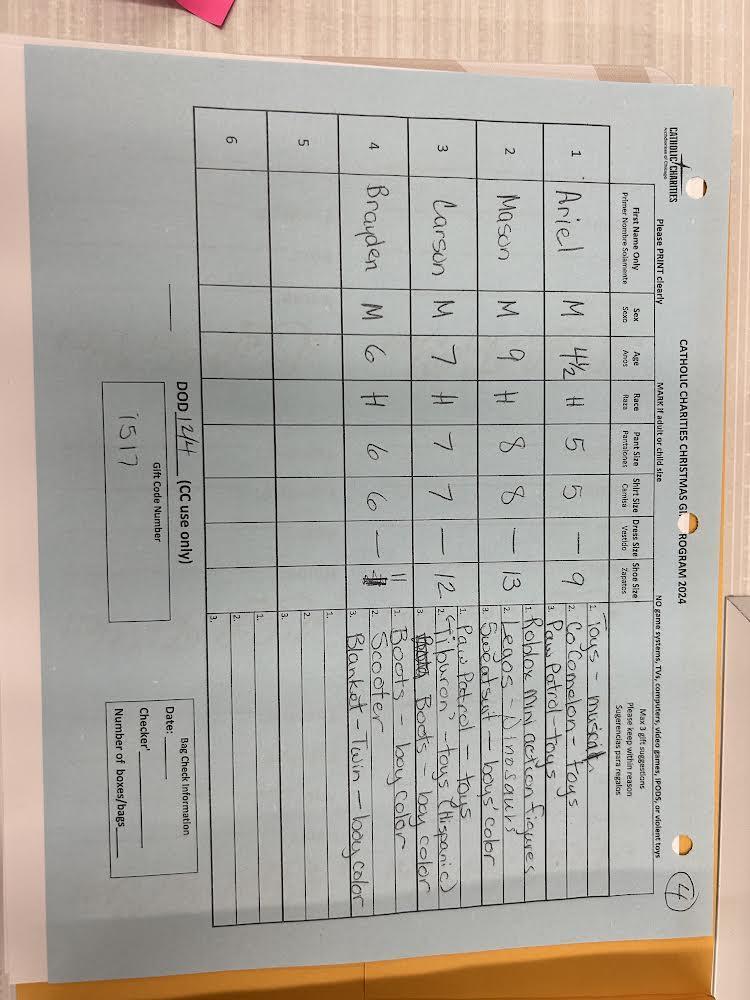 CATHOLIC CHARITIES
Archdiocese of Chicago
CATHOLIC CHARITIES CHRISTMAS GI ROGRAM 2024
4
Please PRINT clearly MARK if adult or child size NO game systems, TVs, computers, video games, IPODS, or violent toys
First Name Only Sex Age Race Pant Size Shirt Size Dress Size Shoe Size Max 3 gift suggestions
Primer Nombre Solamente Sexo Anos Raza Pantalones Camisa Vestido Zapatos Please keep within reason
Sugerencias para regalos
1 Ariel M 4½ H 5 5 — 9
1. Toys -
2. CoComelon - toys
3. Paw Patrol - toys
2 Mason M 9 H 8 8 — 13
1. Roblox Mini action figures
2. Legos - Dinosaurs
3. Sweatsuit - boys' color
3 Carson M 7 H 7 7 — 12
1. Paw Patrol - toys
2. "Tiburon" - toys (Hispanic)
3. Boots - boy color
4 Brayden M 6 H 6 6 — 11
1. Boots - boy color
2. Scooter
3. Blanket - Twin - boy color
5
1.
2.
3.
6
1.
2.
3.
DOD 12/4 (CC use only)
Gift Code Number
1517
Bag Check Information
Date:
Checker'
Number of boxes/bags